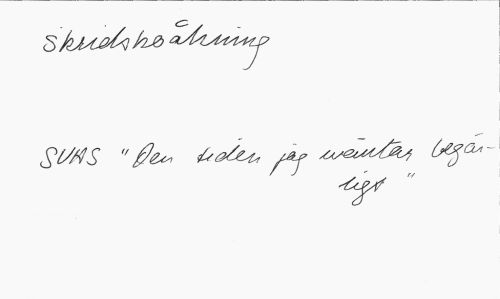 Skridskoåkning
SVHS "Den tiden jag wäntar begär-
ligt"